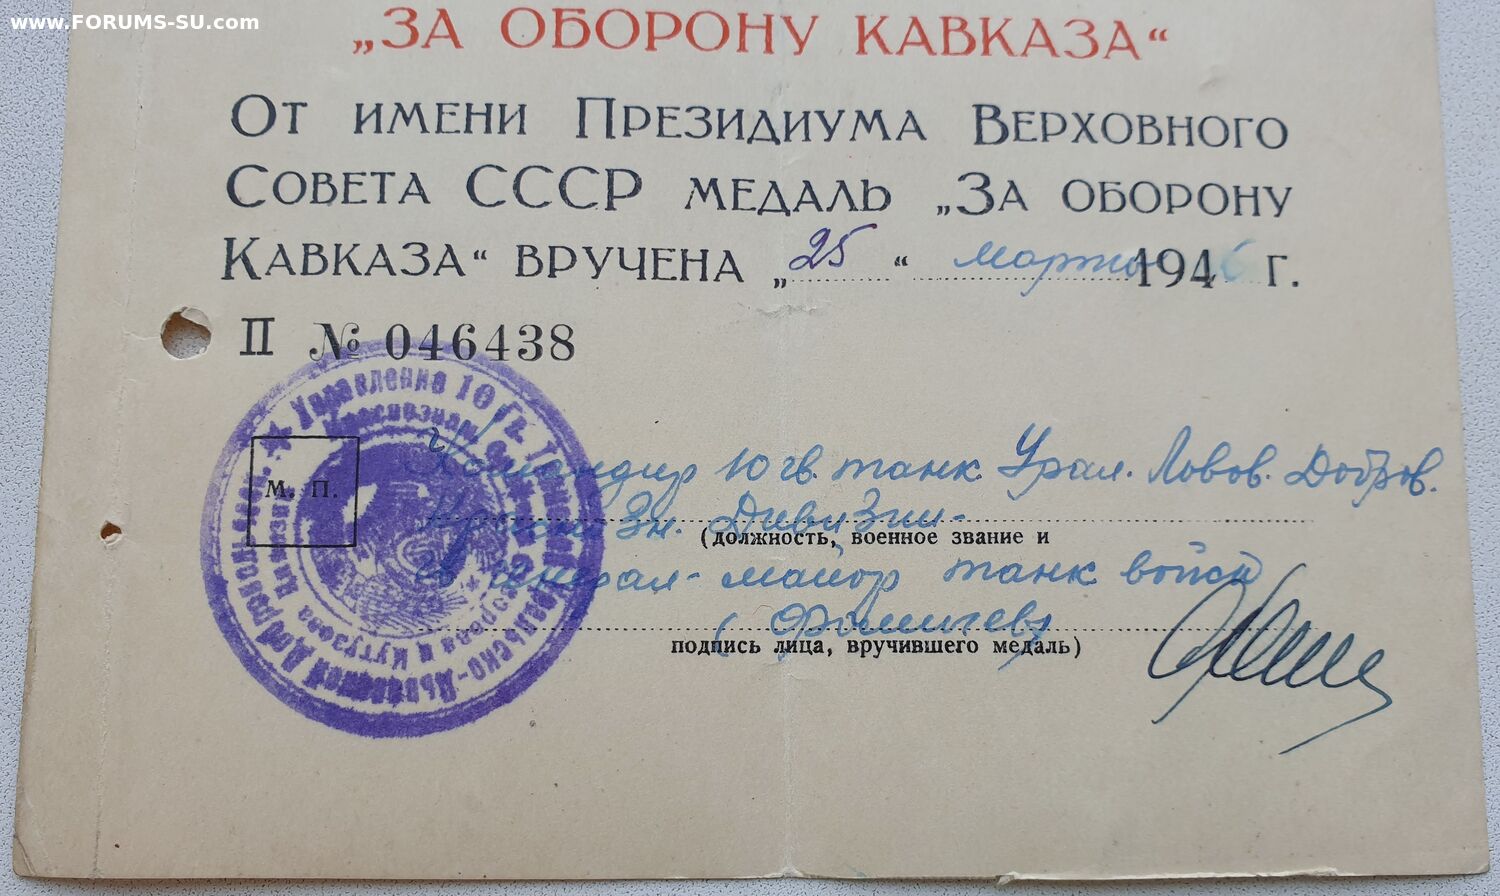 www.FORUMS-SU.com
„ЗА ОБОРОНУ КАВКАЗА“
От имени Президиума Верховного
Совета СССР медаль „За оборону
Кавказа“ вручена „25“ марта 1946 г.
II № 046438
М. П.
Управление 10 Гв. Танковой Уральско-Львовской Добровольческ.
Краснознам. Суворова и Кутузова дивизии
Командир 10 гв. танк. Урал. Львов. Добров.
Зн. Дивизии
(должность, военное звание и
генерал-майор танк войск
(Фомичев)
подпись лица, вручившего медаль)